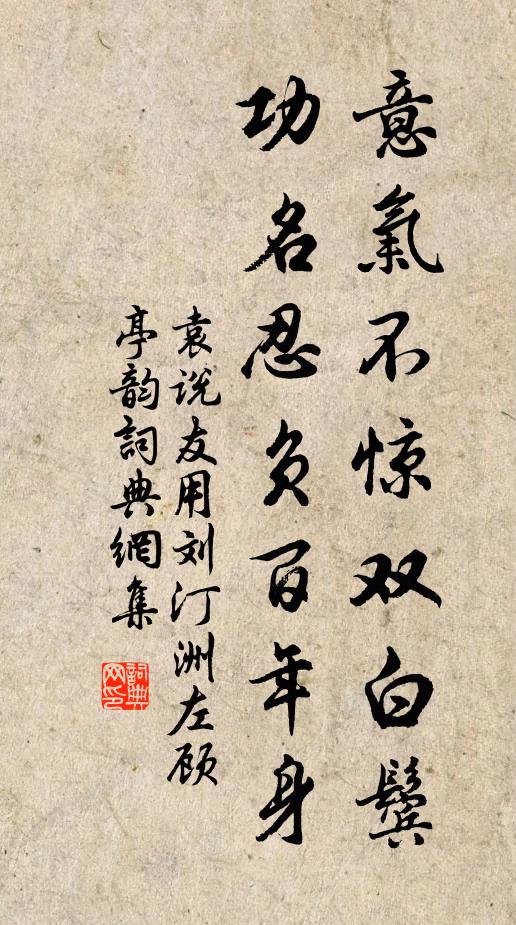 意氣不惊双白鬓
功名忍负百年身
袁说友用刘汀洲左顾
亭韵詞典網集
詞典
网印